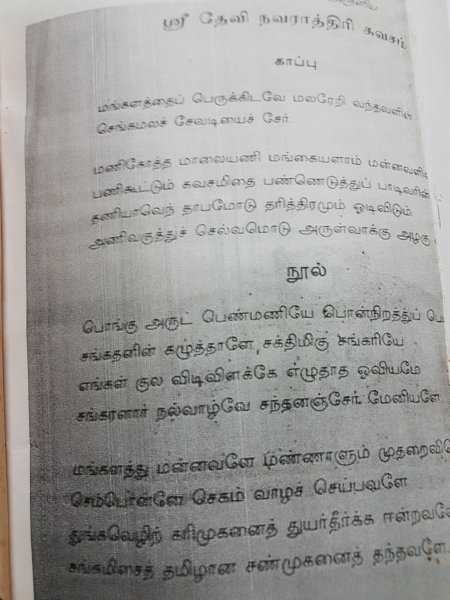 ஸ்ரீ தேவி நவராத்திரி கவசம்
காப்பு
மங்களத்தைப் பெருக்கிடவே மலரேறி வந்தவளின்
செங்கமலச் சேவடியைச் சேர்.
மணிகோத்த மாலையணி மங்கையளாம் மன்னவளின்
பணிகூட்டும் கவசமிதை பண்ணெடுத்துப் பாடிவரின்
தனியாவெந் தாபமோடு தரித்திரமும் ஓடிவிடும்
அணிவகுத்துச் செல்வமொடு அருள்வாக்கு அழகு
நூல்
பொங்கு அருட் பெண்மணியே பொன்நிறத்துப்
சங்கதனின் கழுத்தாளே சக்திமிகு சங்கரியே
எங்கள் குல விடிவிளக்கே எழுதாத ஓவியமே
சங்கரனார் நல்வாழ்வே சந்தனஞ்சேர் மேனியளே.
மங்களத்து மன்னவளே மண்ணாளும்
செம்பொன்னே செகம் வாழச் செய்பவளே
துங்கவெழிற் கரிமுகனைத் துயர்தீர்க்க ஈன்றவளே
சங்கமிசைத் தமிழான சண்முகனைத் தந்தவளே.